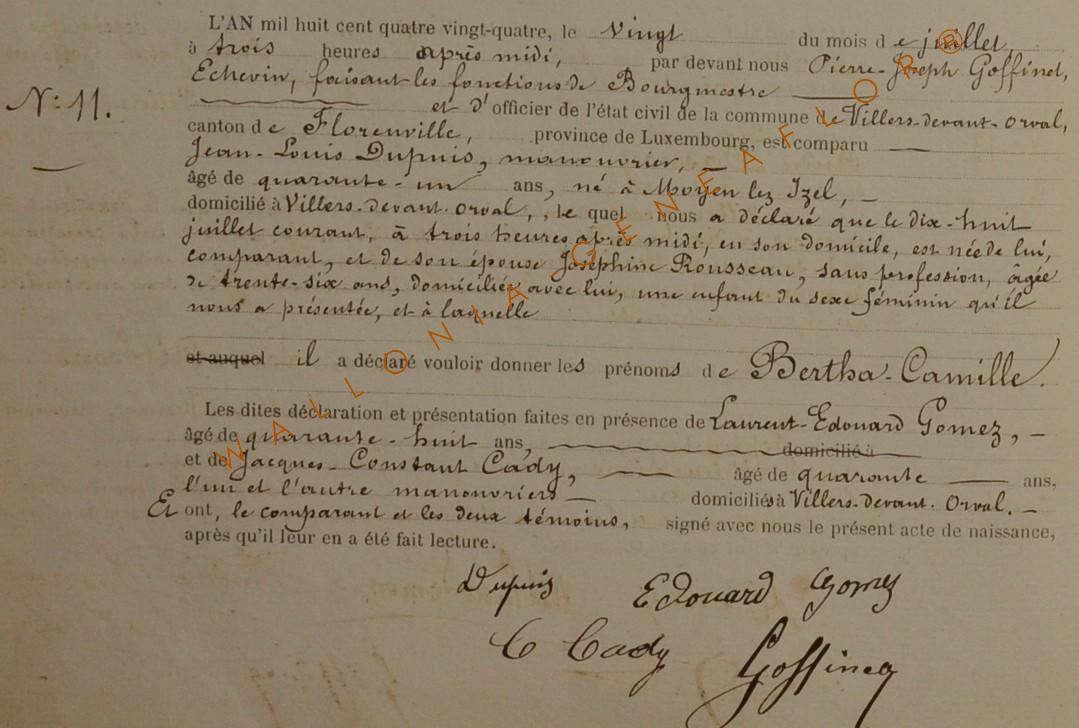 L'AN mil huit cent quatre vingt-quatre, le Vingt du mois de juillet,
à trois heures après midi, par devant nous Pierre-Joseph Goffinet,
Echevin, faisant les fonctions de Bourgmestre
N: 11. et d'officier de l'état civil de la commune de Villers-devant-Orval,
canton de Florenville, province de Luxembourg, est comparu
Jean-Louis Dupuis, manouvrier,
âgé de quarante-un ans, né à Moyen lez Izel,
domicilié à Villers-devant-Orval, , le quel nous a déclaré que le dix-huit
juillet courant, à trois heures après midi, en son domicile, est née de lui,
comparant, et de son épouse Joséphine Rousseau, sans profession, âgée
de trente-six ans, domiciliée avec lui, une enfant du sexe féminin qu'il
nous a présentée, et à laquelle
et auquel il a déclaré vouloir donner les prénoms de Bertha-Camille.
Les dites déclaration et présentation faites en présence de Laurent-Edouard Gomez,
âgé de quarante-huit ans, domicilié à
et de Jacques-Constant Cady, âgé de quarante ans,
l'un et l'autre manouvriers domiciliés à Villers-devant-Orval.
Et ont, le comparant et les deux témoins, signé avec nous le présent acte de naissance,
après qu'il leur en a été fait lecture.
Dupuis Edouard Gomez
C Cady Goffinet
WALLONIA GENEAFLORB